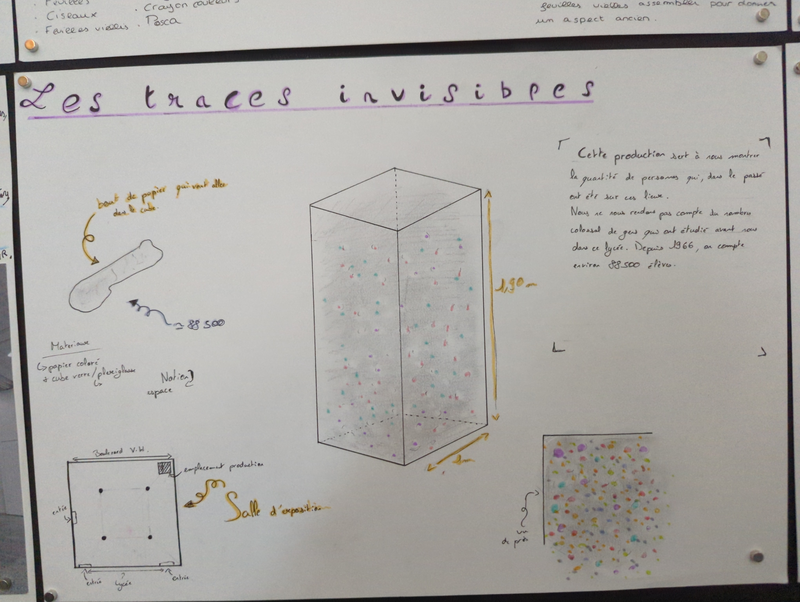 . Feuilles
. Ciseaux
. Feuilles vieilles
. Crayon couleurs
. Posca
feuilles vieilles assemblées pour donner
un aspect ancien.
Les traces invisibles
bout de papier qui vont aller
dans le cube
≃ 88 500
Materiaux
↳ papier coloré
+ cube verre/plexiglass
Notion
espace
1,90 m
1m
Cette production sert à nous montrer
la quantité de personnes qui, dans le passé
ont été sur ces lieux.
Nous ne nous rendons pas compte du nombre
colossal de gens qui ont étudier avant nous
dans ce lycée. Depuis 1966, on compte
environ 88 500 élèves.
Boulevard
emplacement production
Salle d'exposition
entrée
entrée
lycée
entrée
vu
de près